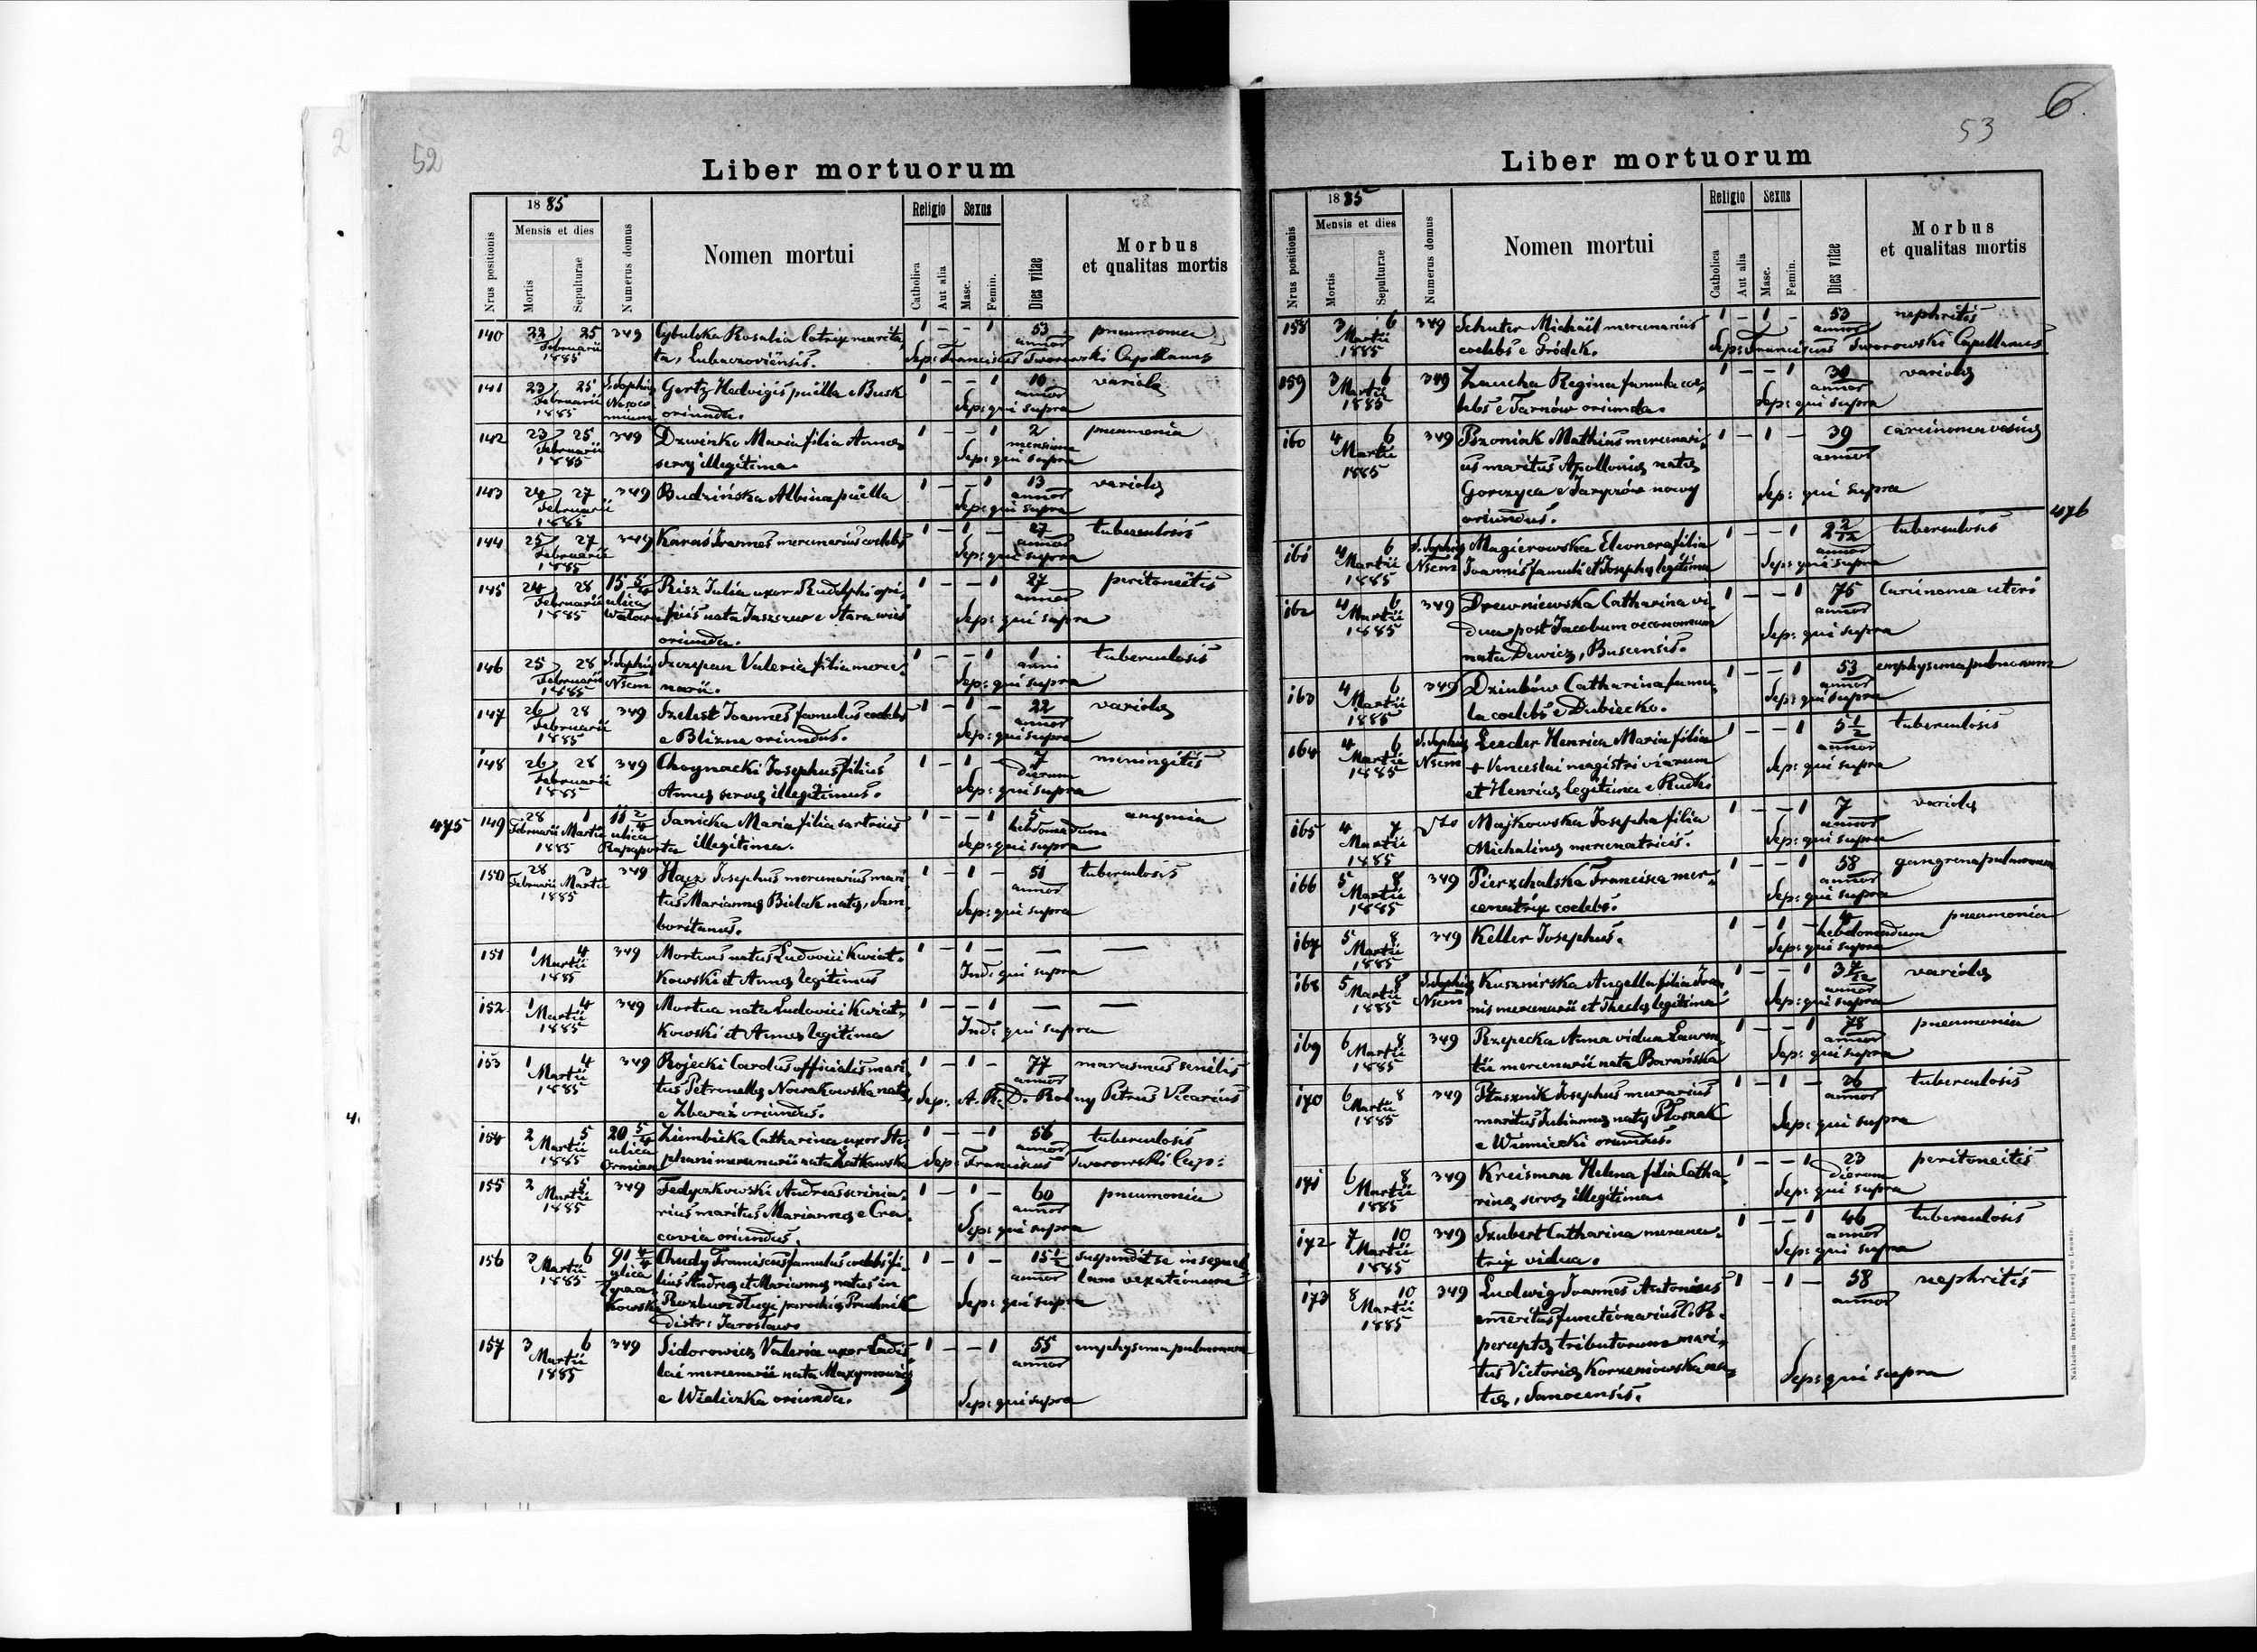 52
Liber mortuorum
Nrus positionis
1885
Mensis et dies
Mortis
Sepulturae
Numerus domus
Nomen mortui
Religio
Catholica
Aut alia
Sexus
Masc.
Femin.
Dies vitae
Morbus
et qualitas mortis
140 22 25 Februarii 1885 349 Cybulska Rosalia lotrix marita- 1 - - 1 53 annor pneumonia
ta, Lubaczoviensis. Sep: Franciscus Tworowski Capellanus
141 23 25 Februarii 1885 S. Sophię Nosocomium Gertz Hedvigis puella e Busk 1 - - 1 10 annor variolę
oriunda. Sep: qui supra
142 23 25 Februarii 1885 349 Dzwinko Maria filia Annę 1 - - 1 2 mensium pneumonia
servę illegitima. Sep: qui supra
143 24 27 Februarii 1885 349 Budzińska Albina puella 1 - - 1 13 annor variolę
Sep: qui supra
144 25 27 Februarii 1885 349 Karaś Joannes mercenarius coelebs 1 - 1 - 27 annor tuberculosis
Sep: qui supra
145 24 28 Februarii 1885 15 5/4 ulica Risz Julia uxor Rudolphi opi- 1 - - 1 27 annor peritoneitis
ficis nata Jaszczur e Stara wieś Sep: qui supra
oriunda.
146 25 28 Februarii 1885 S. Sophię Nscm Szczepan Valeria filia merce- 1 - - 1 1 anni tuberculosis
narii. Sep: qui supra
147 26 28 Februarii 1885 349 Szelest Joannes famulus coelebs 1 - 1 - 22 annor variolę
e Blizne oriundus. Sep: qui supra
148 26 28 Februarii 1885 349 Choynacki Josephus filius 1 - 1 - 7 dierum meningitis
Annę servę illegitimus. Sep: qui supra
475
149 28 1 Februarii Martii 1885 11 2/4 ulica Rapaporta Janicka Maria filia sartricis 1 - - 1 5 hebdomadum
illegitima. Sep: qui supra
150 28 3 Februarii Martii 1885 349 Hacz Josephus mercenarius mari- 1 - 1 - 51 annor tuberculosis
tus Mariannę Bielak natę, Sam- Sep: qui supra
boritanus.
151 1 4 Martii 1885 349 Mortuus natus Ludovici Kwiat- 1 - 1 - — —
kowski et Annę legitimus Ind: qui supra
152 1 4 Martii 1885 349 Mortua nata Ludovici Kwiat- 1 - - 1 — —
kowski et Annę legitima Ind: qui supra
153 1 4 Martii 1885 349 Rojecki Carolus officialis mari- 1 - 1 - 77 annor marasmus senilis
tus Petronellę Nowakowska natę, Sep. A. R. D. Petrus Vicarius
e Zbaraż oriundus.
154 2 5 Martii 1885 20 5/4 ulica Ormian Ziembicka Catharina uxor Ste- 1 - - 1 56 annor tuberculosis
phani mercenarii nata Żatkowska Sep: Franciscus Tworowski Cap:
155 2 5 Martii 1885 349 Fedyczkowski Andreas scrinia- 1 - 1 - 60 annor pneumonia
rius maritus Mariannę e Cra- Sep: qui supra
covia oriundus.
156 3 6 Martii 1885 91 4/4 ulica Chudy Franciscus famulus coelebs fi- 1 - 1 - 15 1/2 annor suspendit se in seque-
lius Andreę et Mariannę natus in lam vexationum
Rozburz długi parochię Pruchnik Sep: qui supra
distr: Jarosław
157 3 6 Martii 1885 349 Sidorowicz Valeria uxor Ladis- 1 - - 1 55 annor emphysema pulmonum
lai mercenarii nata Maxymowicz
e Wieliczka oriunda. Sep: qui supra
6.
53
Liber mortuorum
Nrus positionis
1885
Mensis et dies
Mortis
Sepulturae
Numerus domus
Nomen mortui
Religio
Catholica
Aut alia
Sexus
Masc.
Femin.
Dies vitae
Morbus
et qualitas mortis
158 3 6 Martii 1885 349 Schuter Michaël mercenarius 1 - 1 - 53 annor nephritis
coelebs e Gródek. Sep: Franciscus Tworowski Capellanus
159 3 6 Martii 1885 349 Zaucha Regina famula coe- 1 - - 1 30 annor variolę
lebs e Tarnów oriunda. Sep: qui supra
160 4 6 Martii 1885 349 Pszoniak Mathias mercenari- 1 - 1 - 39 annor carcinoma
us maritus Apollonię natę
Gorczyca e Jaryczów nowy Sep: qui supra
oriundus.
476
161 4 6 Martii 1885 S. Sophię Nscm Magierowska Eleonora filia 1 - - 1 2 2/12 annor tuberculosis
Joannis famuli et Josephę legitima Sep: qui supra
162 4 6 Martii 1885 349 Drewniewska Catharina vi- 1 - - 1 75 annor Carcinoma uteri
dua post Jacobum oeconomum Sep: qui supra
nata Dewicz, Buscensis.
163 4 6 Martii 1885 349 Dziubów Catharina famu- 1 - - 1 53 annor emphysema pulmonum
la coelebs e Dubiecko. Sep: qui supra
164 4 6 Martii 1885 S. Sophię Nscm Lerder Henrica Maria filia 1 - - 1 5 1/2 annor tuberculosis
+ Venceslai magistri viarum Sep: qui supra
et Henricę legitima e Rudki
165 4 7 Martii 1885 dto Majkowska Josepha filia 1 - - 1 7 annor variolę
Michalinę mercenatricis. Sep: qui supra
166 5 8 Martii 1885 349 Pierzchalska Francisca mer- 1 - - 1 58 annor gangrena pulmonum
cenatrix coelebs. Sep: qui supra
167 5 8 Martii 1885 349 Keller Josephus. 1 - 1 - 4 hebdomadum pneumonia
Sep: qui supra
168 5 8 Martii 1885 S. Sophię Nscm Kusznirska Angella filia Joan- 1 - - 1 3 7/12 annor variolę
nis mercenarii et Theclę legitima Sep: qui supra
169 6 8 Martii 1885 349 Rzepecka Anna vidua Lauren- 1 - - 1 78 annor pneumonia
tii mercenarii nata Barańska Sep: qui supra
170 6 8 Martii 1885 349 Ptasznik Josephus murarius 1 - 1 - 26 annor tuberculosis
maritus Juliannę natę Ptaszak Sep: qui supra
e Winniczki oriundus.
171 6 8 Martii 1885 349 Kreisman Helena filia Catha- 1 - - 1 23 dierum peritoneitis
rinę servę illegitima. Sep: qui supra
172 7 10 Martii 1885 349 Szubert Catharina mercena- 1 - - 1 46 annor tuberculosis
trix vidua. Sep: qui supra
173 8 10 Martii 1885 349 Ludwig Joannes Antonius 1 - 1 - 58 annor nephritis
emeritus functionarius C. R.
perceptę tributorum mari-
tus Victorię Korzeniowska na- Sep: qui supra
tę, Sanocensis.
Nakładem Drukarni Ludowej we Lwowie.